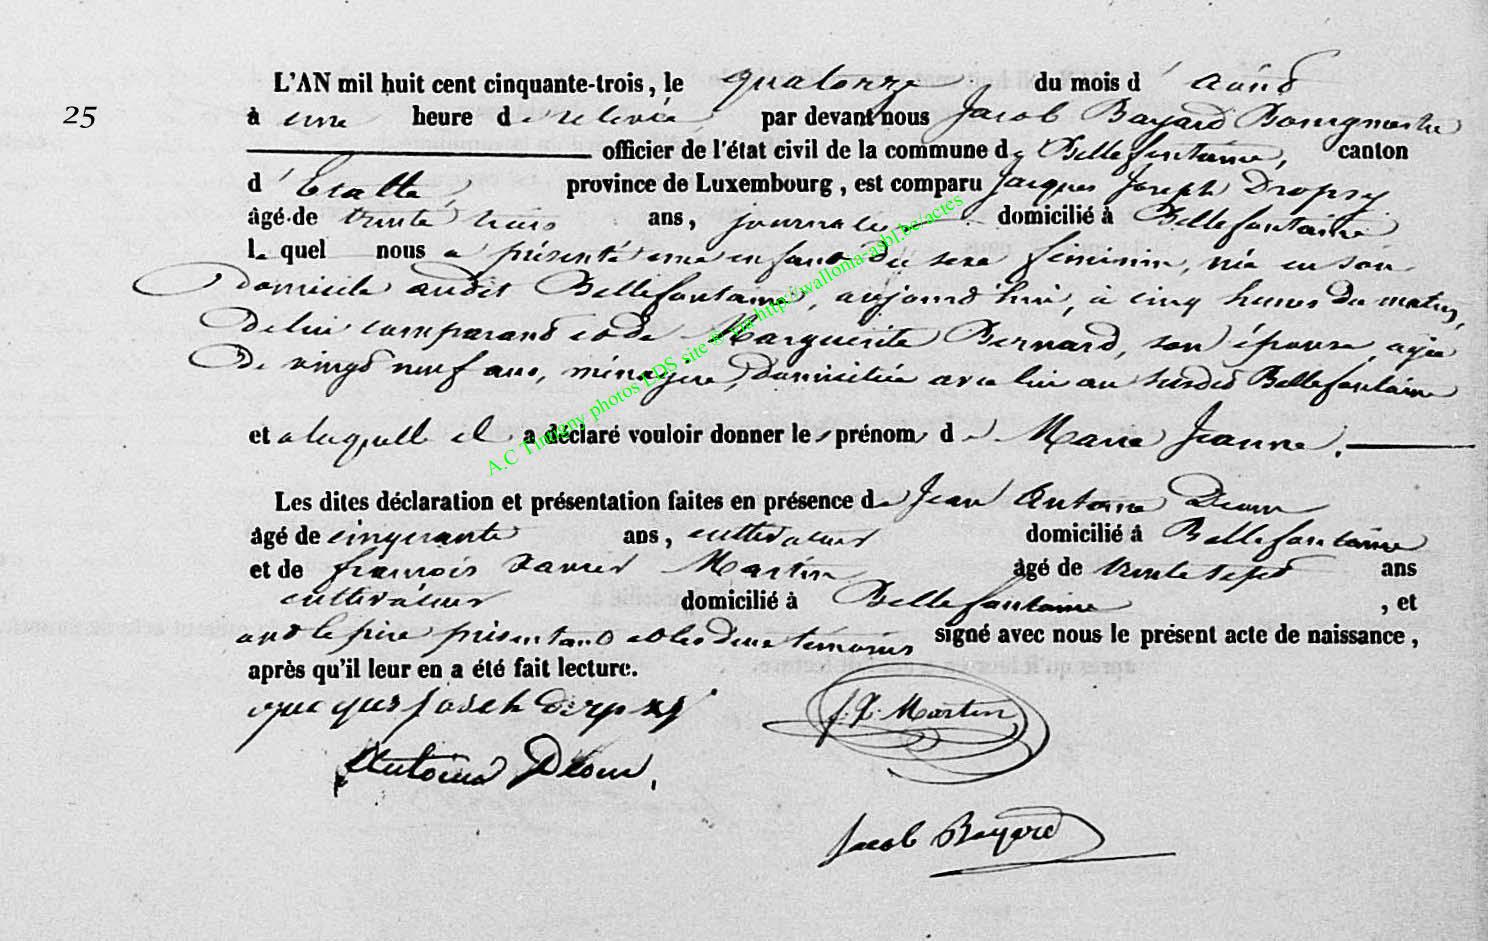 25
L'AN mil huit cent cinquante-trois, le quatorze du mois d'août
à une heure de relevée, par devant nous Jacob Bayard Bourgmestre
officier de l'état civil de la commune de Bellefontaine, canton
d'Etalle, province de Luxembourg, est comparu Jacques Joseph Dropsy
âgé de trente trois ans, journalier domicilié à Bellefontaine
lequel nous a présenté une enfant du sexe féminin, née en son
domicile audit Bellefontaine, aujourd'hui, à cinq heures du matin,
de lui comparant et de Marguerite Bernard, son épouse, agée
de vingt neuf ans, ménagère, domiciliée avec lui au susdit Bellefontaine
et a laquelle il a déclaré vouloir donner les prénoms de Marie Jeanne.
Les dites déclaration et présentation faites en présence de Jean Antoine Deom
âgé de cinquante ans, cultivateur domicilié à Bellefontaine
et de françois Xavier Martin âgé de trente sept ans
cultivateur domicilié à Bellefontaine, et
ont le père présentant et les deux témoins signé avec nous le présent acte de naissance,
après qu'il leur en a été fait lecture.
f. X. Martin
Antoine Deom.
Jacob Bayard
A.C Tintigny photos LDS site @ via http://walloma-asbl.be/actes